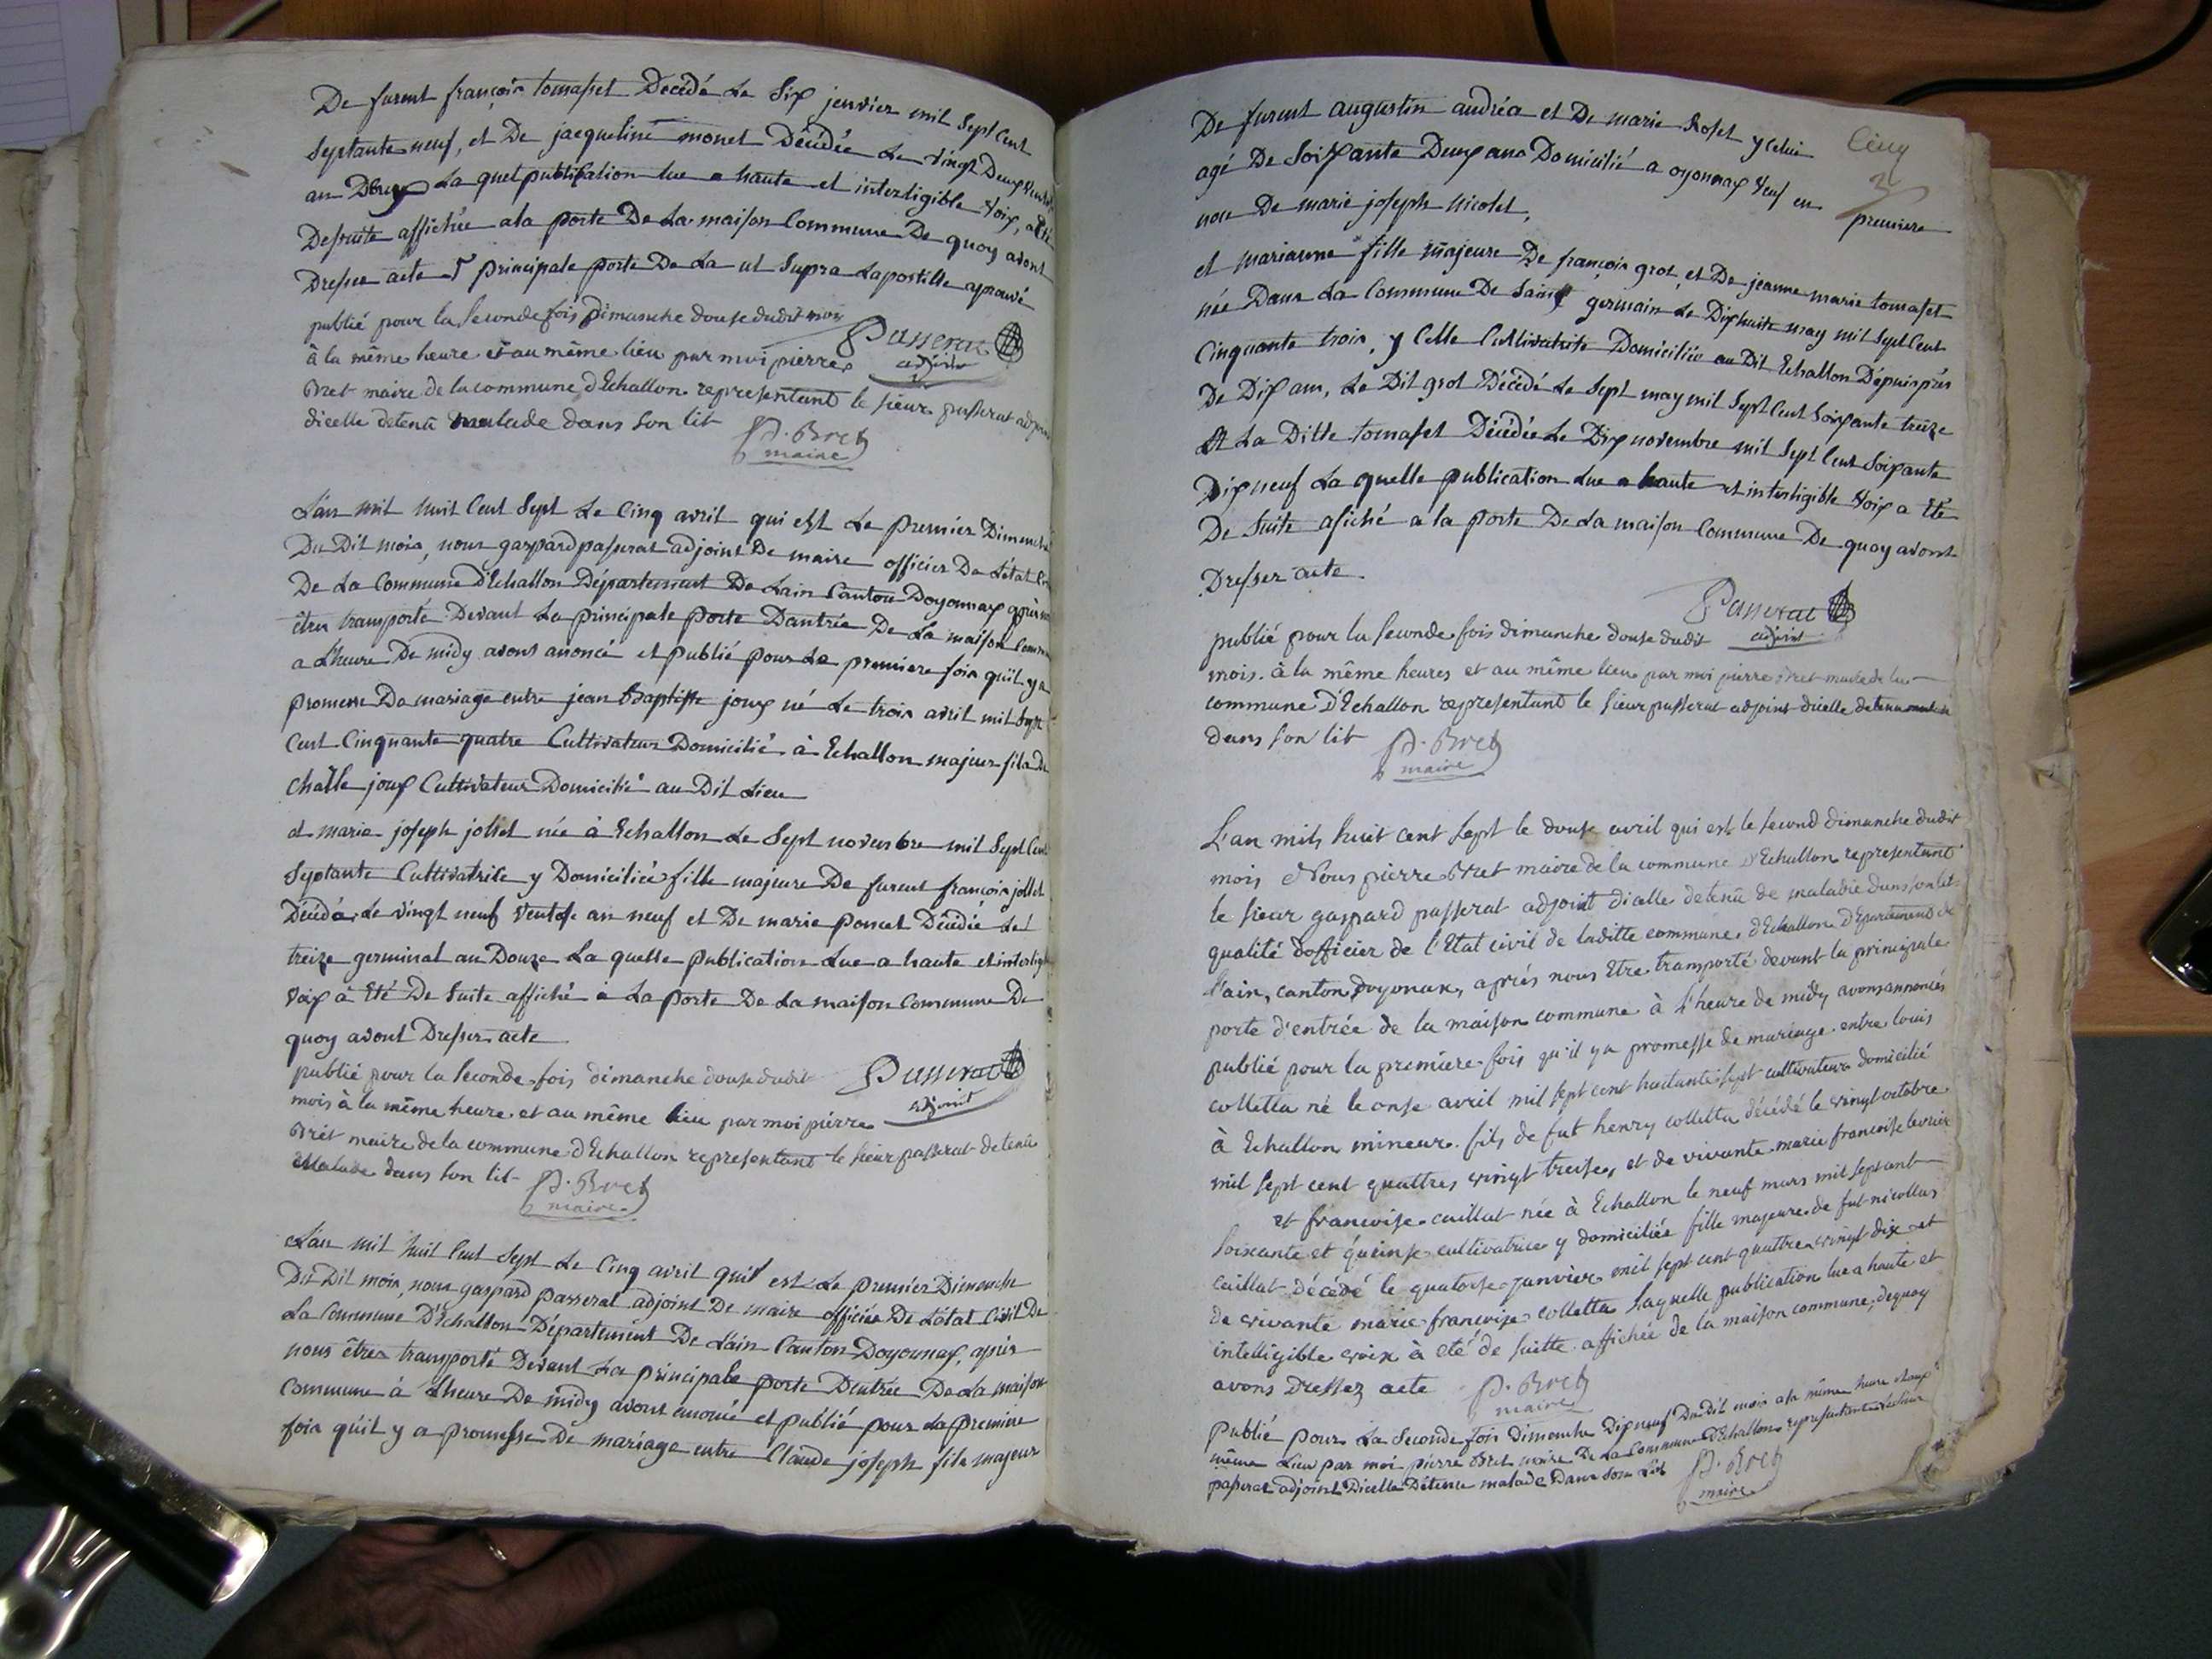 De furent françois tomasset Décédé Le Six jenvier mil Sept Cent
Septante neuf, et De jacqueline monet Décédée Le vingt Deux
an Douze La quel publication lue a haute et interligible Voix, a été
Desuite affichée a la porte De La maison Commune De quoy avont
Dresser acte principale porte De La ut Supra Lapostille aprouvé
publié pour la Seconde fois Dimanche douse dudit mois
à la même heure et au même lieu par moi pierre
Bret maire de la commune d'Echallon representant le sieur passerat adjoint
dicelle detenu malade dans son lit
Passerat
adjoint
P. Bret
maire
L'an mil huit Cent Sept Le Cinq avril qui est Le premier Dimenche
Du Dit mois, nous gaspard passerat adjoint De maire officier De L'état
De La Commune d'Echallon Département De Lain Canton Doyonnax après
êtres transporté Devant La principale porte Dantrée De La maison
a L'heure De midy avont anoncé et publié pour La premiere fois qu'il y a
promesse De mariage entre jean Baptiste joux né Le trois avril mil Sept
Cent Cinquante quatre Cultivateur Domicilié à Echallon majeur fils De
Challe joux Cultivateur Domicilié au Dit Lieu
et marie joseph jollet née à Echallon Le Sept novembre mil Sept Cent
Septante Cultivatrice y Domiciliée fille majeure De furent françois jollet
Décédé Le vingt neuf Ventose an neuf et De marie poncet Décédée Le
treize germinal an Douze La quelle publication Lue a haute et interligible
Voix à Eté De Suite affiché à La porte De La maison Commune De
quoy avont Dresser acte
publié pour la seconde fois dimanche douse dudit
mois à la même heure et au même lieu par moi pierre
Bret maire de la commune d'Echallon representant le sieur passerat detenu
Malade dans son lit
Passerat
adjoint
P. Bret
maire
L'an mil huit Cent Sept Le Cinq avril quil est Le premier Dimenche
Du Dit mois, nous gaspard passerat adjoint De maire officier De L'état Civil De
La Commune D'Echallon Département De L'ain Canton Doyonnax, après
nous êtres transporté Devant La principale porte Dentrée De La maison
Commune à L'heure De midy avont anoncé et publié pour La premiere
fois qu'il y a promesse De mariage entre Claude joseph fils majeur
Cinq
De furent augustin andréa et De marie Roset y celui
agé De Soixante Deux ans Domicilié a oyonnax Veuf en premiere
noce De marie joseph Nicolet,
et marianne fille majeure De françois grot, et De jeanne marie tomasset
née Dans La Commune De Saint germain Le Dixhuite may mil Sept Cent
Cinquante trois, y Celle Cultivatrice Domiciliée au Dit Echallon Dépuis près
De Dix ans, Le Dit grot Décédé Le Sept may mil Sept Cent Soixante treize
Et La Ditte tomasset Décédée Le Dix novembre mil Sept Cent Soixante
Dix neuf La quelle publication Lue a haute et interligible Voix a Eté
De Suite afiché a la porte De La maison Commune De quoy avont
Dresser acte.
Passerat
adjoint
publié pour la seconde fois dimanche douse dudit
mois à la même heures et au même lieu par moi pierre Bret maire de la
commune D'Echallon representant le sieur passerat adjoint dicelle detenu malade
dans son lit
P. Bret
maire
L'an mil huit cent sept le douse avril qui est le second dimanche dudit
mois Nous pierre Bret maire de la commune d'Echallon representant
le sieur gaspard passerat adjoint dicelle detenu de maladie dans son lit
qualité d'officier de l'Etat civil de laditte commune d'Echallon Département de
l'ain, canton d'oyonnax, aprés nous Etre transporté devant la principale
porte d'entrée de la maison commune à l'heure de midy avons annoncés
publié pour la premiere fois qu'il y a promesse de mariage entre louis
colletta né le onse avril mil sept cent huitante sept cultivateur domicilié
à Echallon mineur fils de fut henry colletta décédé le vingt octobre
mil sept cent quattres vingt treise, et de vivante marie francoise levrier
et francoise caillat née à Echallon le neuf mars mil sept cent
soixante et quinse cultivatrice y domiciliée fille majeure de fut nicollas
caillat décédé le quatorse janvier mil sept cent quattre vingt dix et
de vivante marie francoise colletta laquelle publication lue a haute et
intelligible voix à eté de suitte affichée de la maison commune, dequoy
avons Dressez acte
P. Bret
maire
Publié pour La Seconde fois Dimenche Dixneuf Du Dit mois a la même heure et au
même Lieu par moi pierre Bret maire De La Commune D'Echallon representant Le Sieur
passerat adjoint Dicelle Détenu malade Dans Son Lit
P. Bret
maire